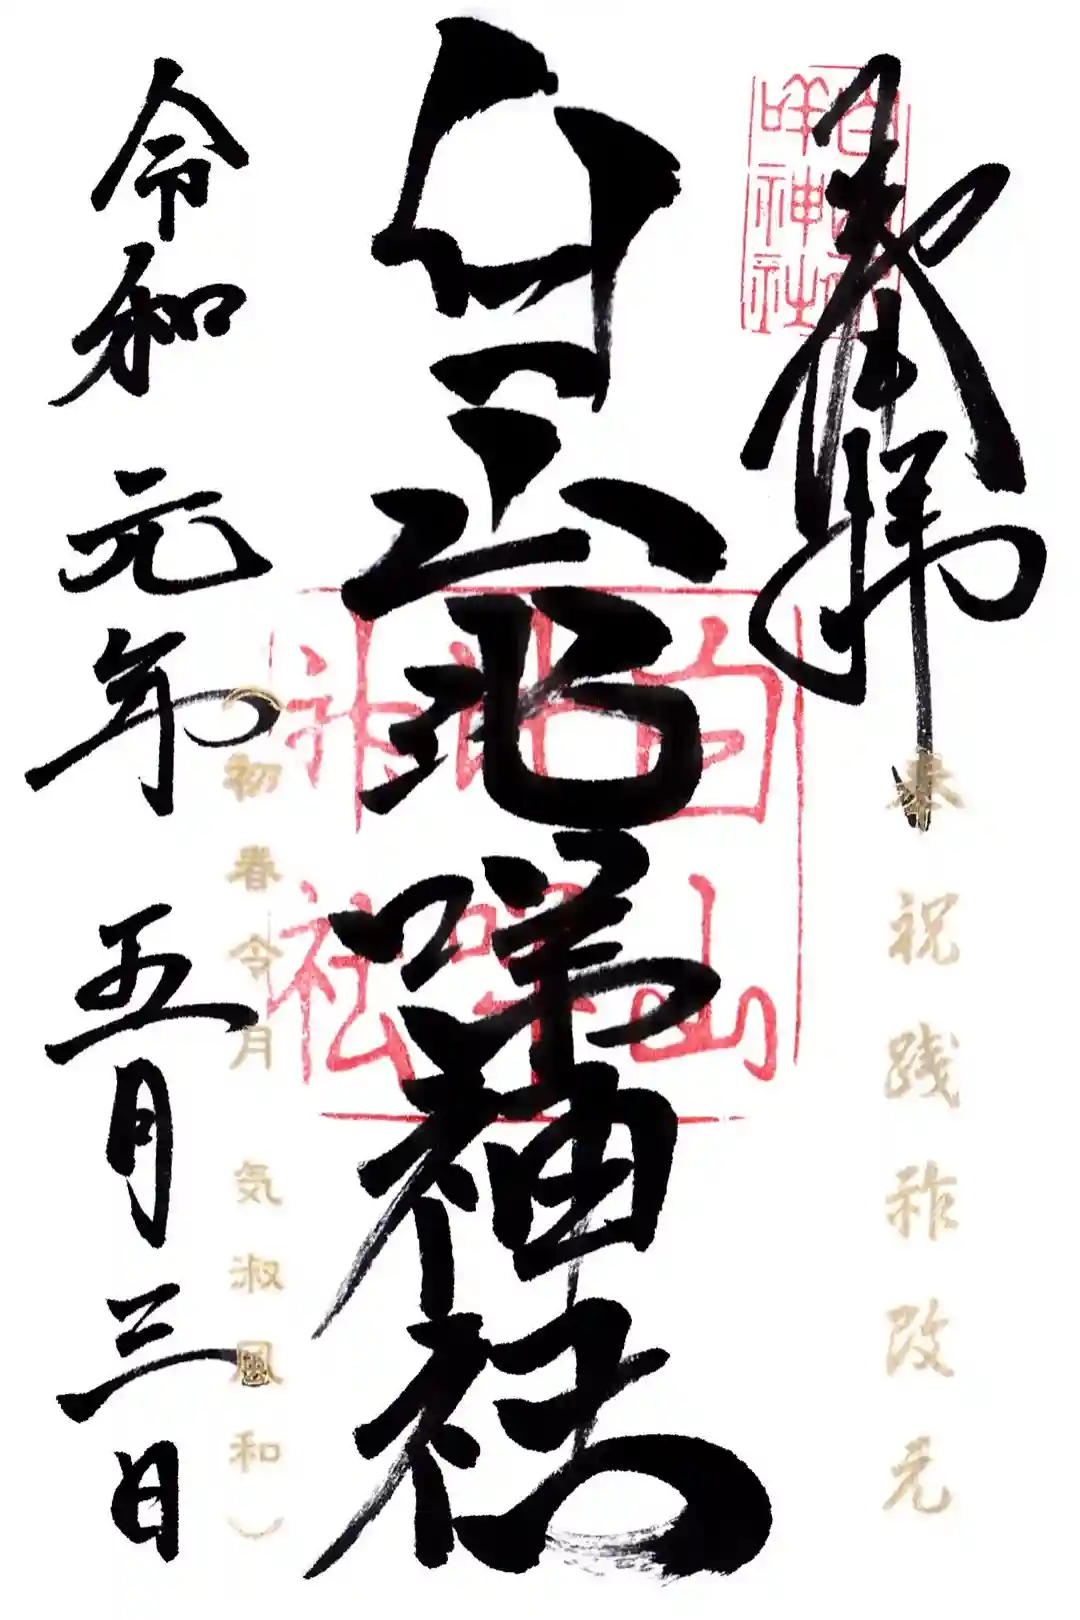 奉拝
奉祝践祚改元
白山比咩神社
白山比咩神社
白山比咩神社
(初春令月 気淑風和)
令和元年五月三日